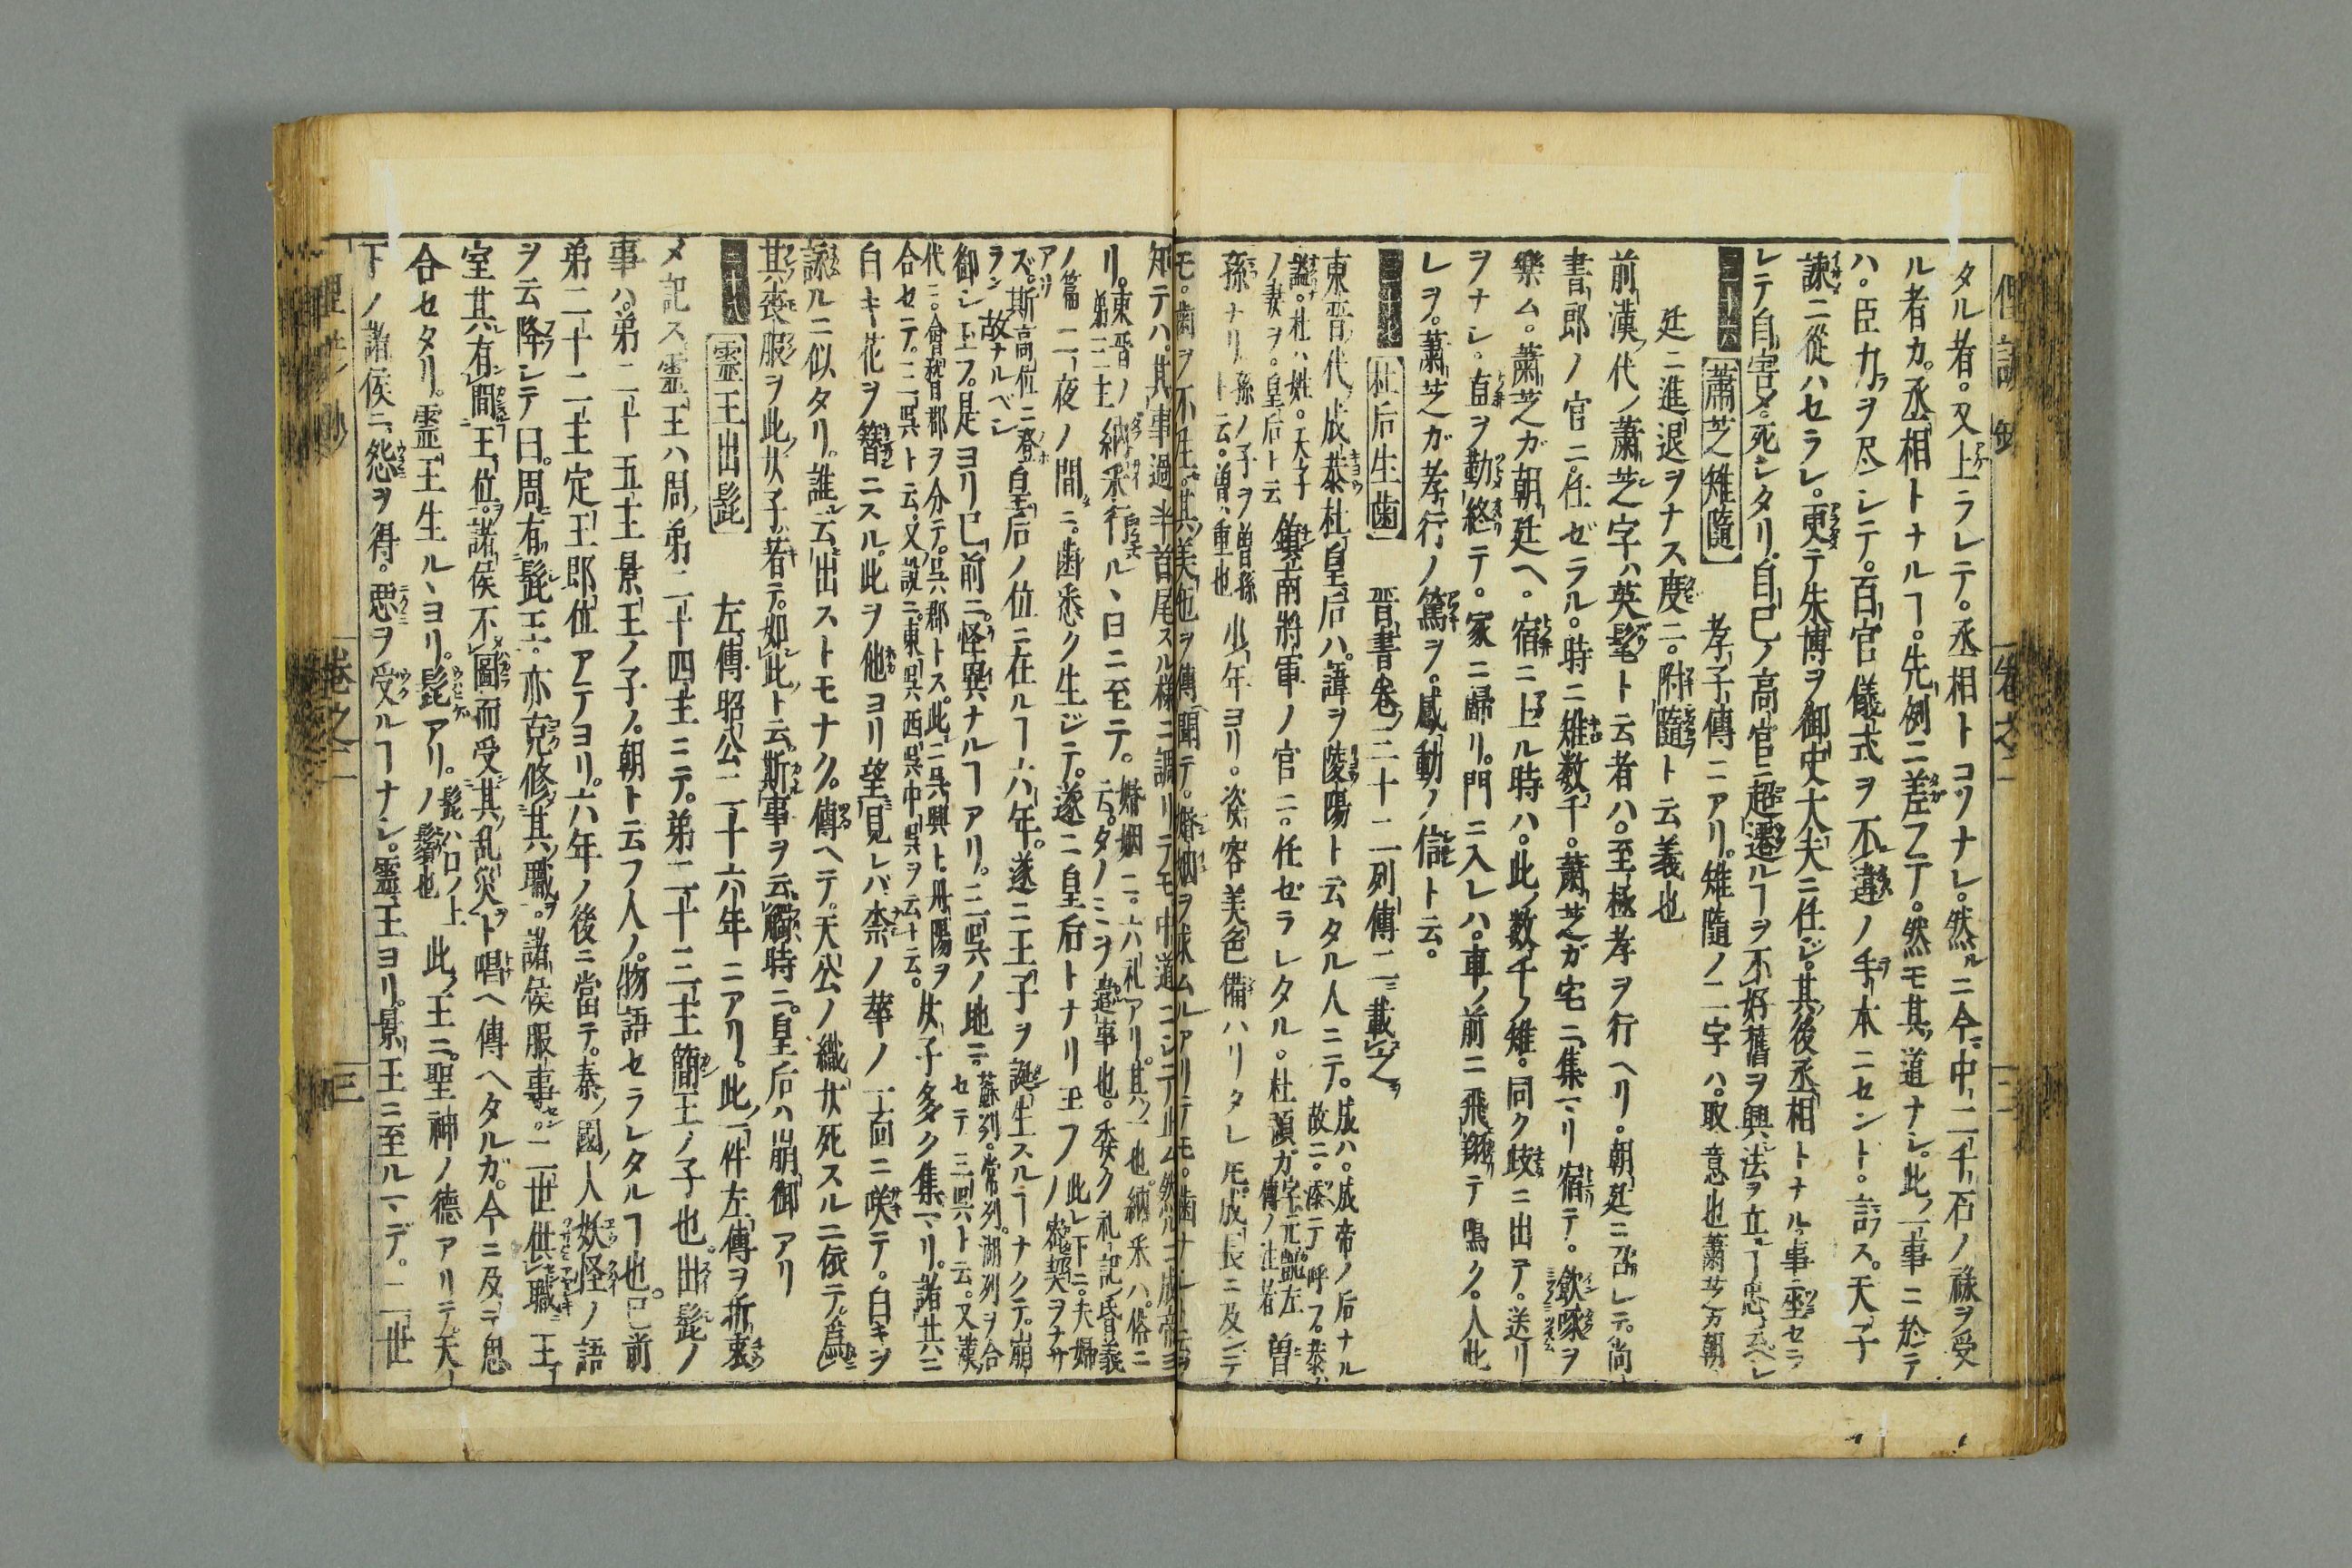 タル者。又上ラレテ。丞相トコソナレ。然ルニ今中二千石ノ祿ヲ受
ル者カ。丞相トナルヿ。先例ニ差フテ。然モ其道ナシ。此一事ニ於テ
ハ。臣力ヲ尽シテ。百官儀式ヲ不違ノ手本ニセント。訁ス。天子
諌ニ從ハセラレ。更テ朱博ヲ御史大夫ニ任ジ。其後丞相トナル。事
レテ自害〆死シタリ。自己ノ高官ニ超遷ルヿヲ不好舊ヲ興法ヲ立
二十六 【蕭芝雉隨】 孝子傳ニアリ。雉隨ノ二字ハ。取意也蕭芝ガ朝
廷ニ進退ヲナス度ニ。附隨ト云義也
前漢代ノ蕭芝字ハ英髦ト云者ハ。至極孝ヲ行ヘリ。朝廷ニ召レテ。尚
書郎ノ官ニ任ゼラル。時ニ雉数千。蕭芝ガ宅ニ集リ宿テ。飲啄ヲ
樂ム。蕭芝ガ朝廷ヘ。宿ニ上ル時ハ。此数千ノ雉。同ク歧ニ出テ。送リ
ヲナシ。直ヲ勤終テ。家ニ歸リ。門ニ入レハ。車ノ前ニ飛翔テ鳴ク。人此
レヲ。蕭芝ガ孝行ノ篤ヲ。感動ノ信ト云。
【杜后生歯】 晋書卷三十二列傳二載之
東晋代成恭杜皇后ハ。諱ヲ陵陽ト云タル人ニテ。成ハ。成帝ノ后ナル故ニ。添テ呼フ。恭ハ
謚。杜ハ姓。天子ノ妻ヲ。皇后ト云 鎮南將軍ノ官ニ。任ゼラレタル。杜預ガ字元凱左傳ノ注者 曽
孫ナリ孫ノ子ヲ曽孫ト云。曽ハ重也 少年ヨリ。姿容美色備ハリタレ𪜈。成長ニ及ンテ
モ。歯ヲ不生。其美色ヲ傳聞テ。婚姻ヲ求ムルアリテモ。歯ナシト云ヲ
知テハ。其事過半首尾スル様ニ調リテモ。中道ニシテ止ム然ルニ成帝ヨ
リ。東晋ノ第三主 納采行ル丶日ニ至テ。婚姻ニ。六礼アリ。其一也。納采ハ。俗ニ云。タノミヲ遣事也。委ク礼記昏義
ノ篇アリ 一夜ノ間ニ。歯悉ク生ジテ。遂ニ皇后トナリ玉フ 此レ下ニ。夫婦ノ密契ヲナサ
ズ。斯高位ニ登ラン故ナルベシ 皇后ノ位ニ在ルヿ六年。遂ニ王子ヲ誕生スルヿナクテ。崩
御シ玉フ。是ヨリ已前ニ。怪異ナルヿアリ。三呉ノ地ニ。蘇州。常州。湖州ヲ合セテ三呉ト云。又漢
代ニ。會稽郡ヲ分テ。呉郡トス。此ニ呉興ト。丹陽ヲ合セテ。三呉ト云。又説ニ。東呉西呉中呉ヲ云ト云。 女子多ク集リ。諸共ニ
白キ花ヲ簪ニスル。此ヲ他ヨリ望見レバ柰ノ華ノ一面ニ咲テ。白キヲ
詠ルニ似タリ。誰云出ストモナク。傳ヘテ。天公ノ織女死スルニ依テ。爲
其喪服ヲ此女子著テ。如此ト云。斯事ヲ云觸時ニ。皇后ハ崩御アリ
二十八 【霊王出髭】 左傳昭公二十六年ニアリ。此一件左傳ヲ折衷
〆記ス霊王ハ周第二十四主ニテ。第二十三主簡王ノ子也。出髭ノ
事ハ。第二十五主景王ノ子ノ。朝ト云フ人ノ。物語セラレタルヿ也。已前
第二十二主定王郎位アテヨリ。六年ノ後ニ當テ。秦ノ國人妖怪ノ語
ヲ云降シテ曰。周有髭王。亦克修其職。諸侯服事。二世供職。王
室其有間王位。諸侯不圖而受其乱災ト唱ヘ傳ヘタルガ。今ニ及テ思
合セタリ。霊王生ル丶ヨリ。髭アリ。髭ハ口ノ上ノ鬚也 此王ニ。聖神ノ德アリテ。天
下ノ諸侯ニ怨ヲ得。惡ヲ受ルヿナシ。霊王ヨリ。景王ニ至ルマデ。二世
卷之二
三